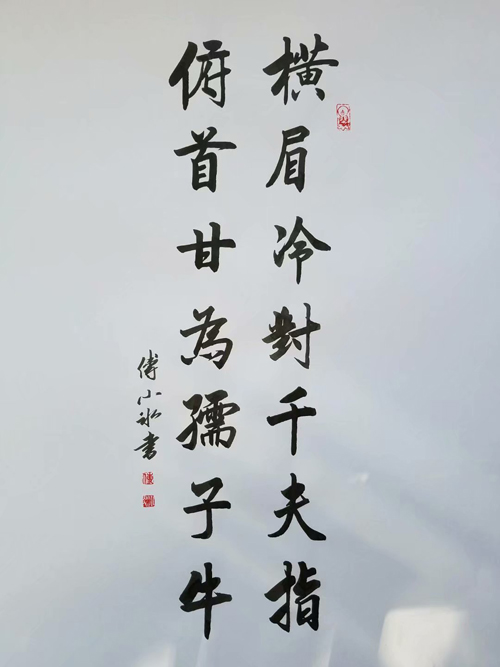 橫眉冷對千夫指
俯首甘為孺子牛
傅小冰书